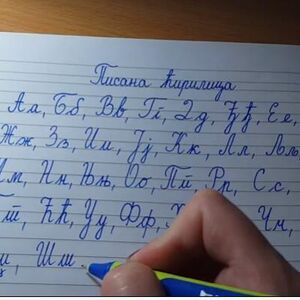 Писана ћирилица
Аа, Бб, Вв, Гг, Дд, Ђђ, Ее,
Жж, Зз, Ии, Јј, Кк, Лл, Љљ
Мм, Нн, Њњ, Оо, Пп, Рр, Сс,
Тт, Ћћ, Уу, Фф, Чч,
Шш